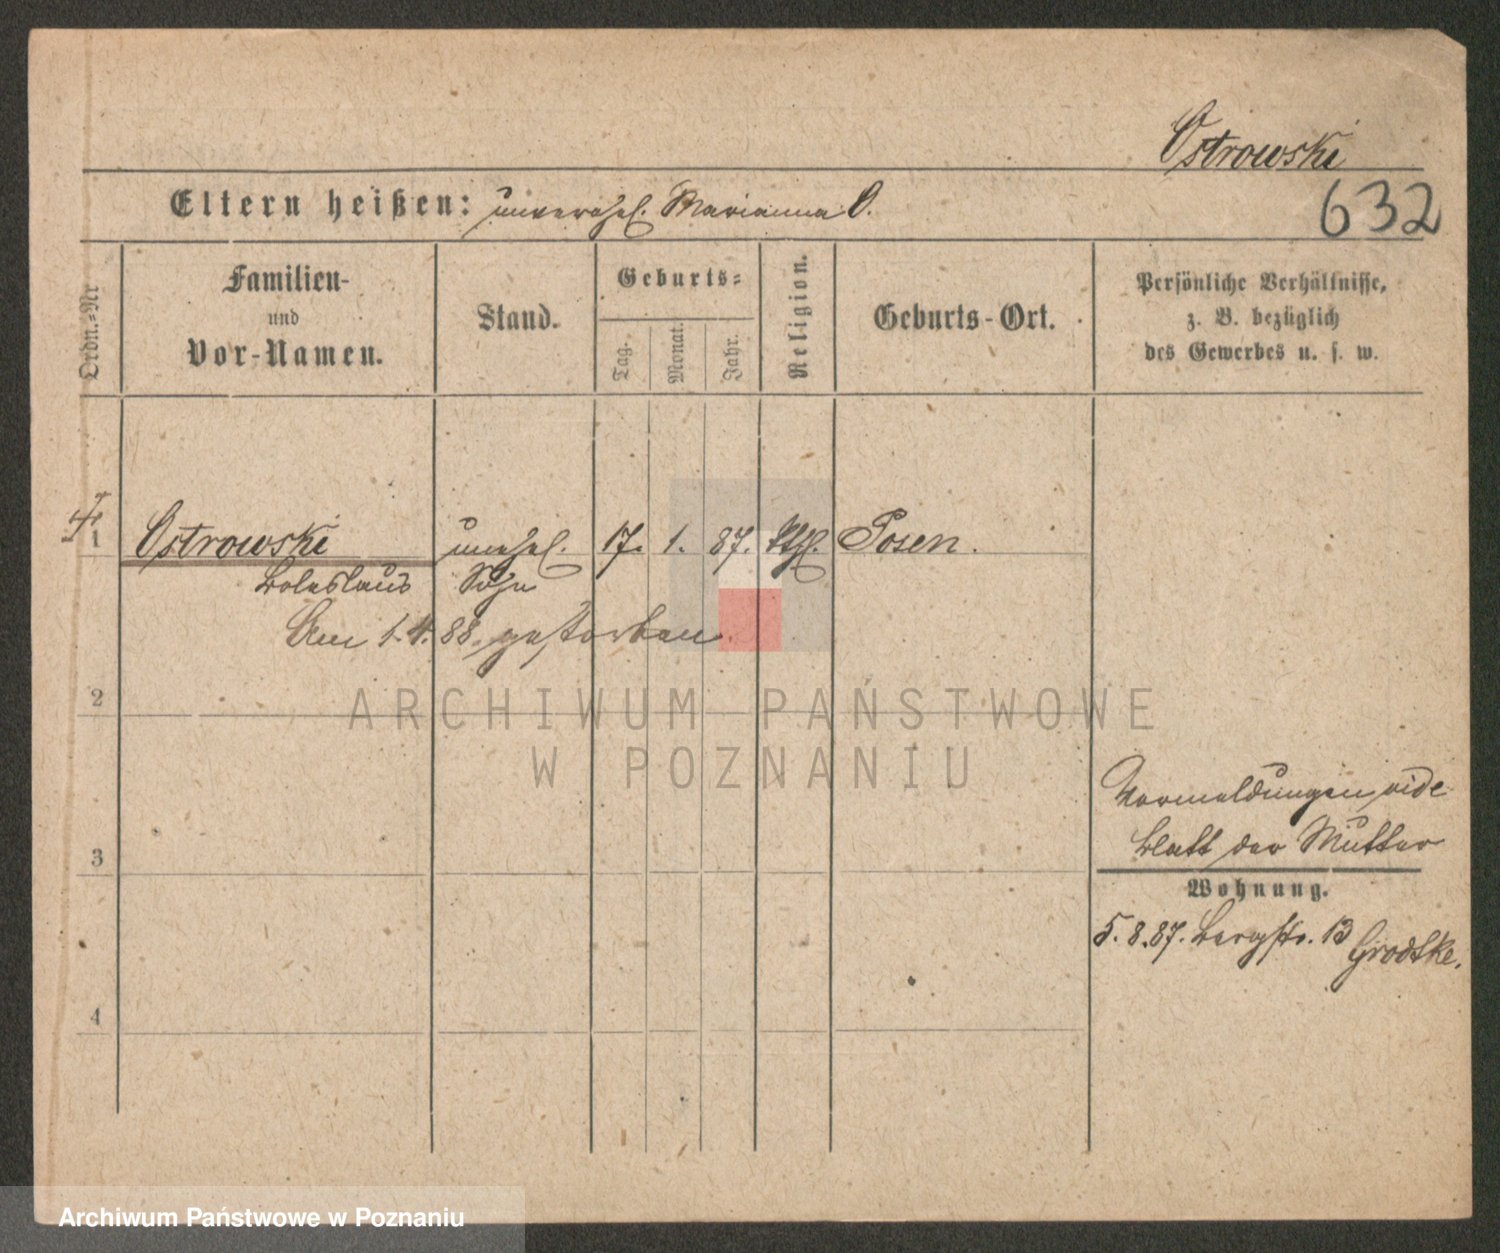 Ostrowski
Eltern heißen: unverehel. Marianna O.
632
Ordn.-Nr
Familien-
und
Vor-Namen.
Stand.
Geburts-
Tag.
Monat.
Jahr.
Religion.
Geburts-Ort.
Persönliche Verhältnisse,
z. B. bezüglich
des Gewerbes u. s. w.
1 Ostrowski unehel. 17. 1. 87. kthl. Posen.
Boleslaus Sohn
Am 1.4.88. gestorben.
2
ARCHIWUM PAŃSTWOWE
W POZNANIU
Vormeldungen vide
Blatt der Mutter
3
Wohnung.
5.8.87. Bergstr. 13 Grodzke.
4
Archiwum Państwowe w Poznaniu